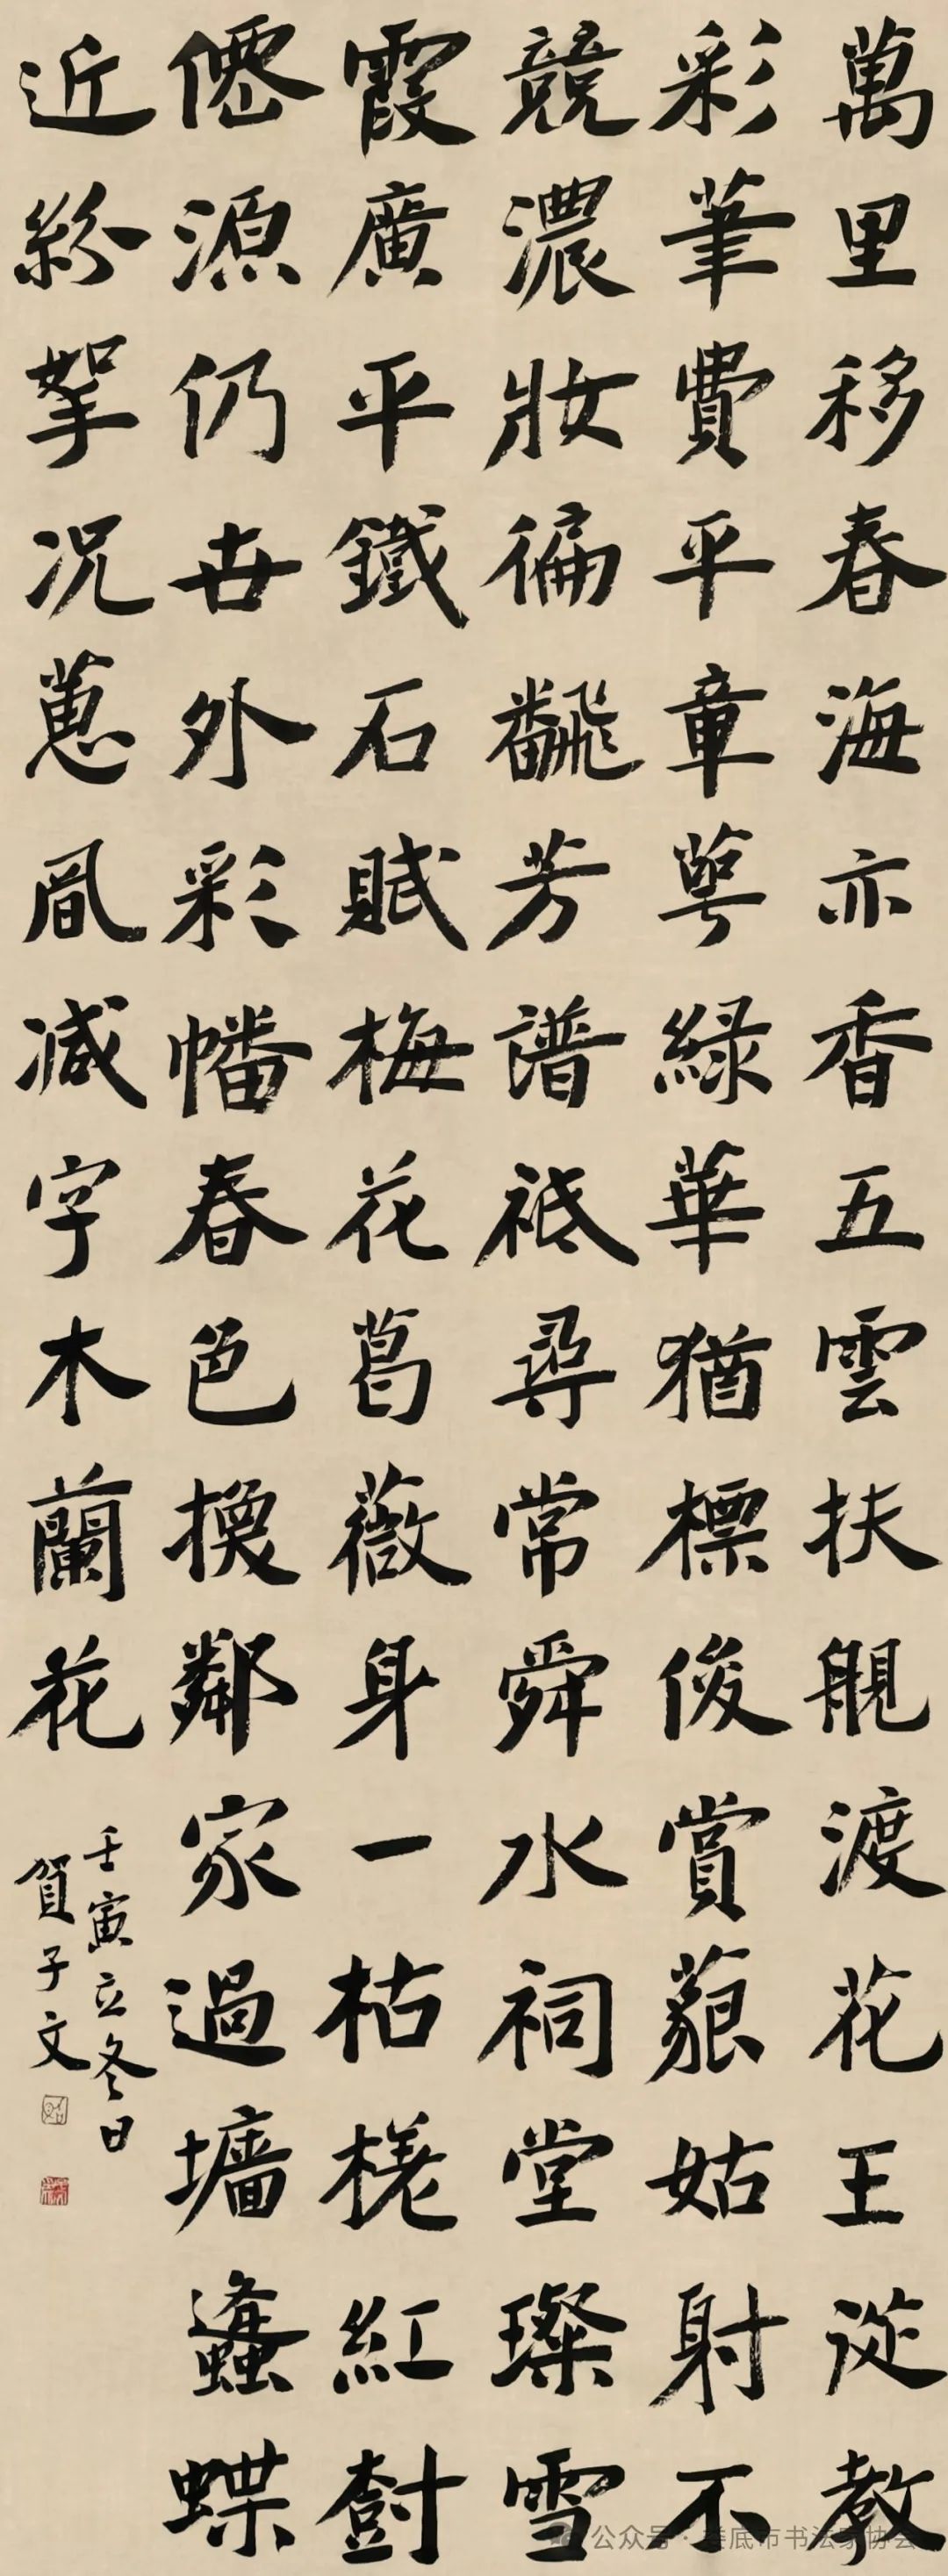 萬里移春海亦香五雲扶艦渡花王從教
彩筆費平章萼綠華猶標俊賞藐姑射不
競濃妝徧翻芳譜袛尋常舜水祠堂璨雪
霞廣平鐵石賦梅花葛薇身一枯槎紅樹
僊源仍世外彩幡春色換鄰家過墻蠭蝶
近紛挐況蕙風減字木蘭花
壬寅立冬日
賀子文
公众号·娄底市书法家协会